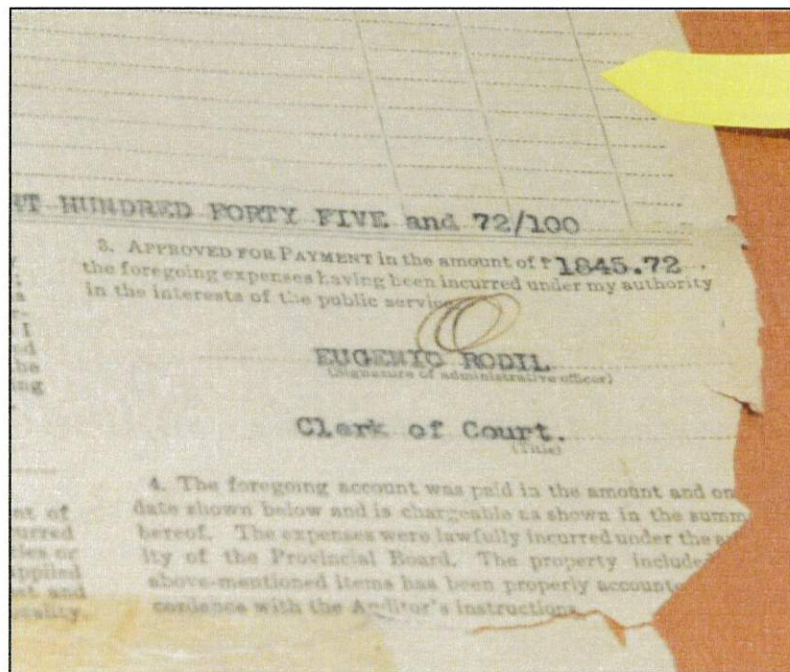 HUNDRED FORTY FIVE and 72/100
3. APPROVED FOR PAYMENT in the amount of ₱1845.72.
the foregoing expenses having been incurred under my authority
in the interests of the public service.
EUGENIO RODIL
(Signature of administrative officer)
Clerk of Court.
(Title)
4. The foregoing account was paid in the amount and on
date shown below and is chargeable as shown in the summ
hereof. The expenses were lawfully incurred under the
ity of the Provincial Board. The property included
above-mentioned items has been properly accounte
cordance with the Auditor's instructions
I
nt of
urred
cles or
applied
and